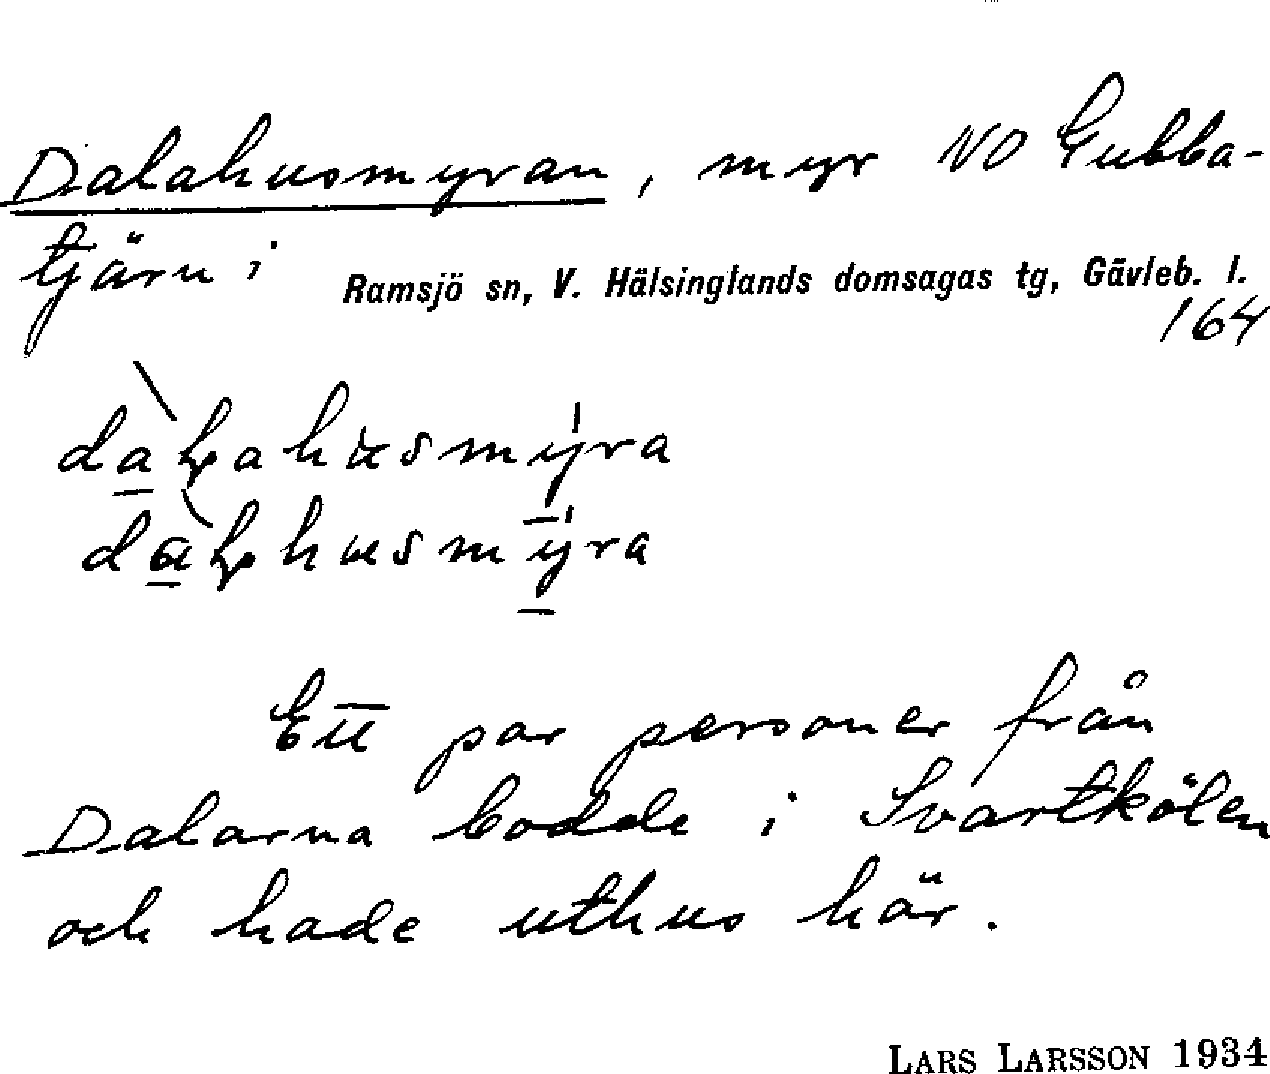 Dalahusmyran, myr NO Gubba-
tjärn i Ramsjö sn, V. Hälsinglands domsagas tg, Gävleb. l.
164
Ett par personer från
Dalarna bodde i Svartkölen
och hade uthus här.
LARS LARSSON 1934